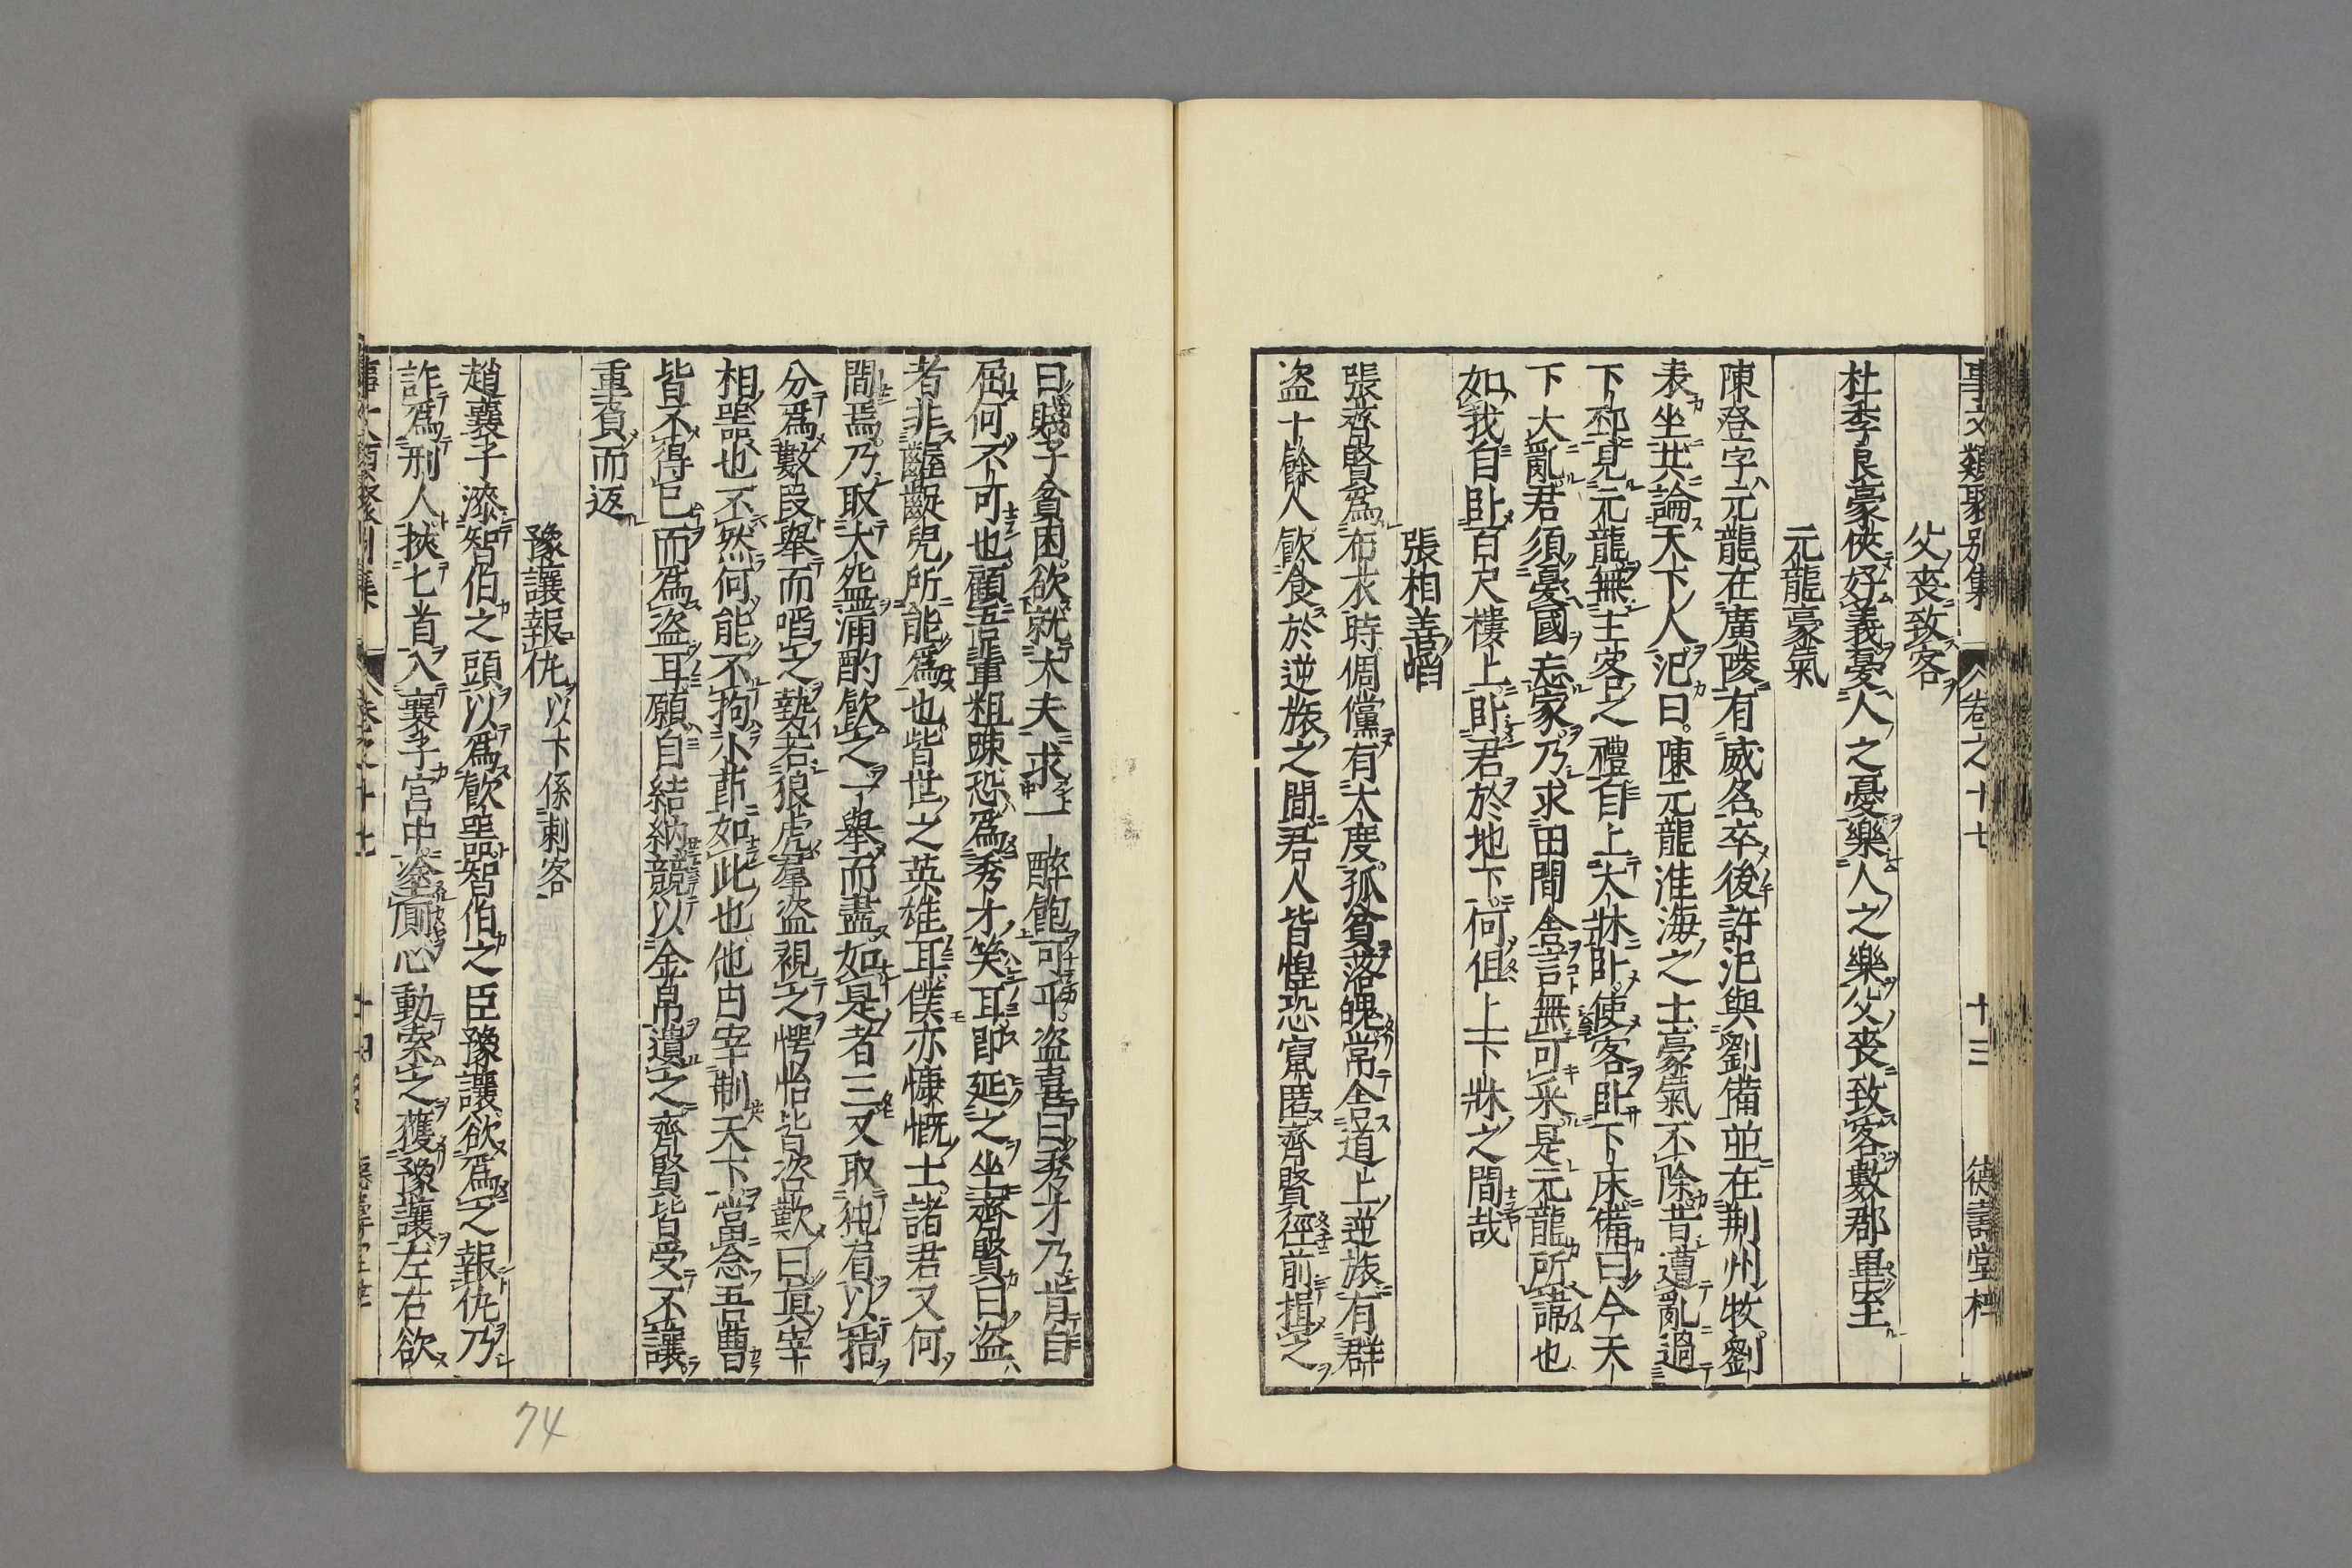 事文類聚別集 卷之十七 十三 德壽堂梓
父喪致客
杜季良豪俠好義憂人之憂樂人之樂父喪致客數郡畢至
元龍豪氣
陳登字元龍在廣陵有威名卒後許汜與劉備並在荆州牧劉
表坐共論天下人汜曰陳元龍淮海之士豪氣不除昔遭亂過
下邳見元龍無主客之禮自上大牀臥使客臥下床備曰今天
下大亂君須憂國忘家乃求田問舍言無可采是元龍所諱也
如我自臥百尺樓上臥君於地下何但上下牀之間哉
張相善啗
張齊賢爲布衣時倜儻有大度孤貧落魄常舍道上逆旅有群
盗十餘人飲食於逆旅之間君人皆惶恐竄匿齊賢徑前揖之
曰賤子貧困欲就大夫求一醉飽可乎盗喜曰秀才乃肯自
屈何不可也顧吾輩粗踈恐爲秀才笑耳即延之坐齊賢曰盗
者非齷齪兒所能爲也皆世之英雄耳僕亦慷慨士諸君又何
間焉乃取大盌滿酌飲之一舉而盡如是者三又取㹠肩以指
分爲數段舉而啗之勢若狼虎羣盗視之愕怡皆咨歎曰眞宰
相噐也不然何能不拘小莭如此也他日宰制天下當念吾曹
皆不得已而爲盗耳願自結納競以金帛遺之齊賢皆受不讓
重負而返
豫讓報仇 以下係刺客
趙襄子漆智伯之頭以爲飲噐智伯之臣豫讓欲爲之報仇乃
詐爲刑人挾匕首入襄子宮中塗厠心動索之獲豫讓左右欲
卷之十七 十四
74